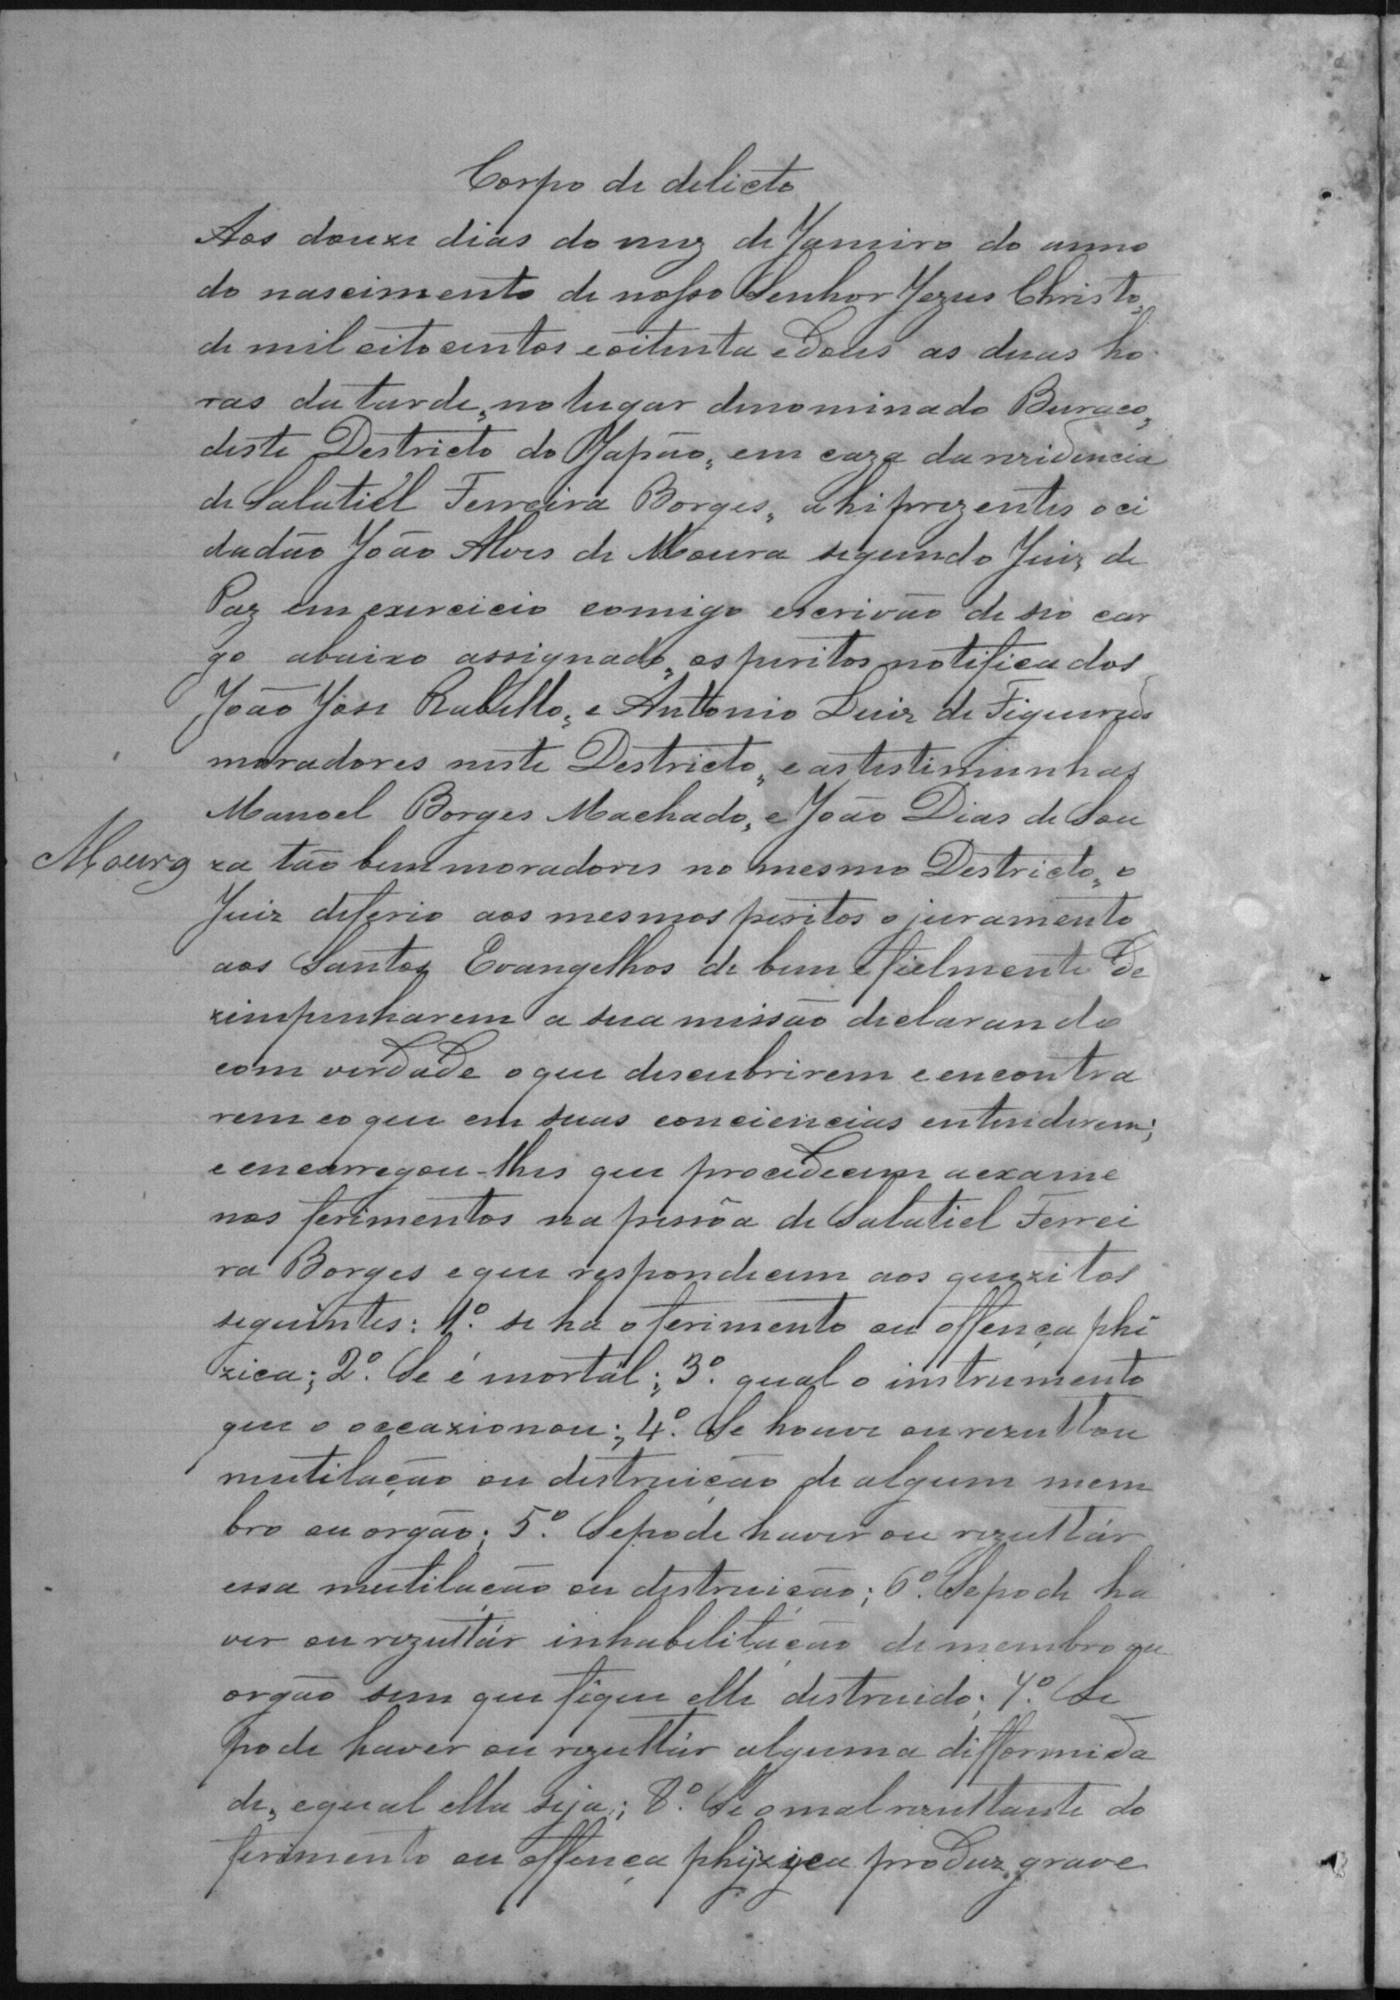 Corpo de delicto
Aos douze dias do mez de Janeiro do anno
do nascimento de nosso Senhor Jezus Christo,
de mil oitocentos e oitenta e dous as duas ho
ras da tarde, no lugar denominado Buraco,
deste Destricto do Japão, em caza da rezidencia
de Salatiél Ferreira Borges, ahi prezentes o ci
dadão João Alves de Moura segundo Juiz de
Paz em exercicio comigo escrivão de seo car
go abaixo assignado, os peritos notificados
João Jose Rabello, e Antonio Luiz de Figueredo
moradores neste Destricto, e as testimunhas
Manoel Borges Machado, e João Dias de Sou
Moura
za tão bem moradores no mesmo Destricto, o
Juiz deferio aos mesmos peritos o juramento
aos Santos Evangelhos de bem e fielmente de
zimpenharem a sua missão declarando
com verdade o que descubrirem e encontra
rem e o que em suas conciencias entenderem;
e encarregou-lhes que procedecem a exame
nos ferimentos na pessôa de Salatiel Ferrei
ra Borges e que respondecem aos quezitos
seguintes: 1º. se ha o ferimento ou offença phi
zica; 2º. Se é mortál; 3º. qual o instrumento
que o occazionou; 4º. Se houve ou rezultou
mutilação ou distruição de algum mem
bro ou orgão; 5º. Se pode haver ou rezultár
essa mutilação ou distruição; 6º. Se pode ha
ver ou rezultár inhabilitação de membro ou
orgão sem que fique elle distruido; 7º. Se
pode haver ou rezultár alguma difformida
de, e qual ella seja; 8º. Se o mal rezultante do
ferimento ou offença phyzica produz grave